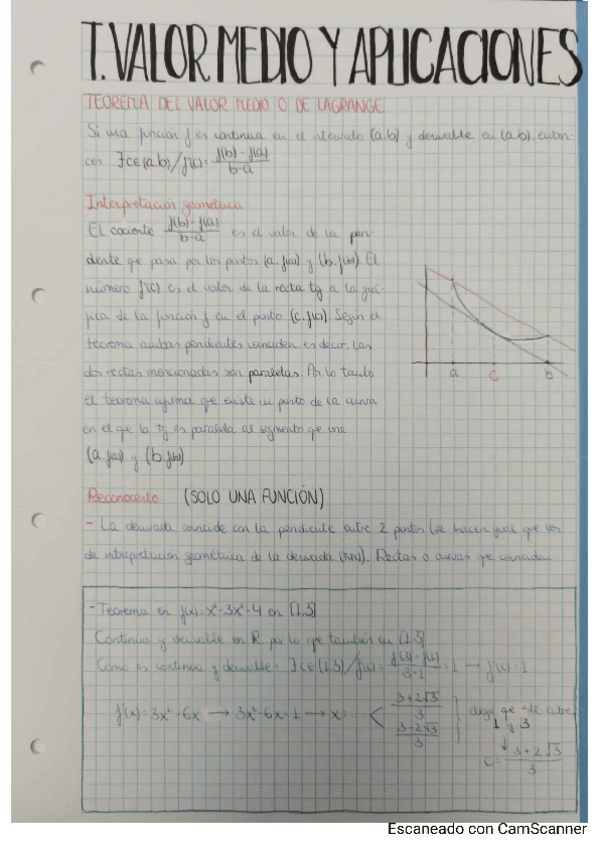 T. VALOR MEDIO Y APLICACIONES
TEOREMA DEL VALOR MEDIO O DE LAGRANGE
Si una función f es continua en el intervalo (a,b) y derivable en (a,b), enton-
ces ∃c∈(a,b) / f'(c) = f(b) - f(a) / b-a
Interpretación geométrica
El cociente f(b) - f(a) / b-a es el valor de la pen-
diente que pasa por los puntos (a, f(a)) y (b, f(b)). El
número f'(c) es el valor de la recta tg a la grá-
fica de la función f en el punto (c, f(c)). Según el
teorema ambas pendientes coinciden, es decir, las
dos rectas mencionadas son paralelas. Por lo tanto
el teorema afirma que existe un punto de la curva
en el que la tg es paralela al segmento que une
(a, f(a)) y (b, f(b))
a c b
Reconocerlo (SOLO UNA FUNCIÓN)
- La derivada coincide con la pendiente entre 2 puntos (se hacen igual que los
de interpretación geométrica de la derivada). Rectas o curvas que coinciden
- Teorema en f(x)=x³-3x²-4 en [1,3]
Continua y derivable en R, por lo que también en [1,3]
Como es continua y derivable: ∃c∈(1,3) / f'(c) = f(3) - f(1) / 3-1 = 1 → f'(c)=1
f'(x)=3x²-6x → 3x²-6x=1 → x=... < 3+2√3 / 3
3-2√3 / 3
} que esté entre
1 y 3
↓
c = 3+2√3 / 3
Escaneado con CamScanner